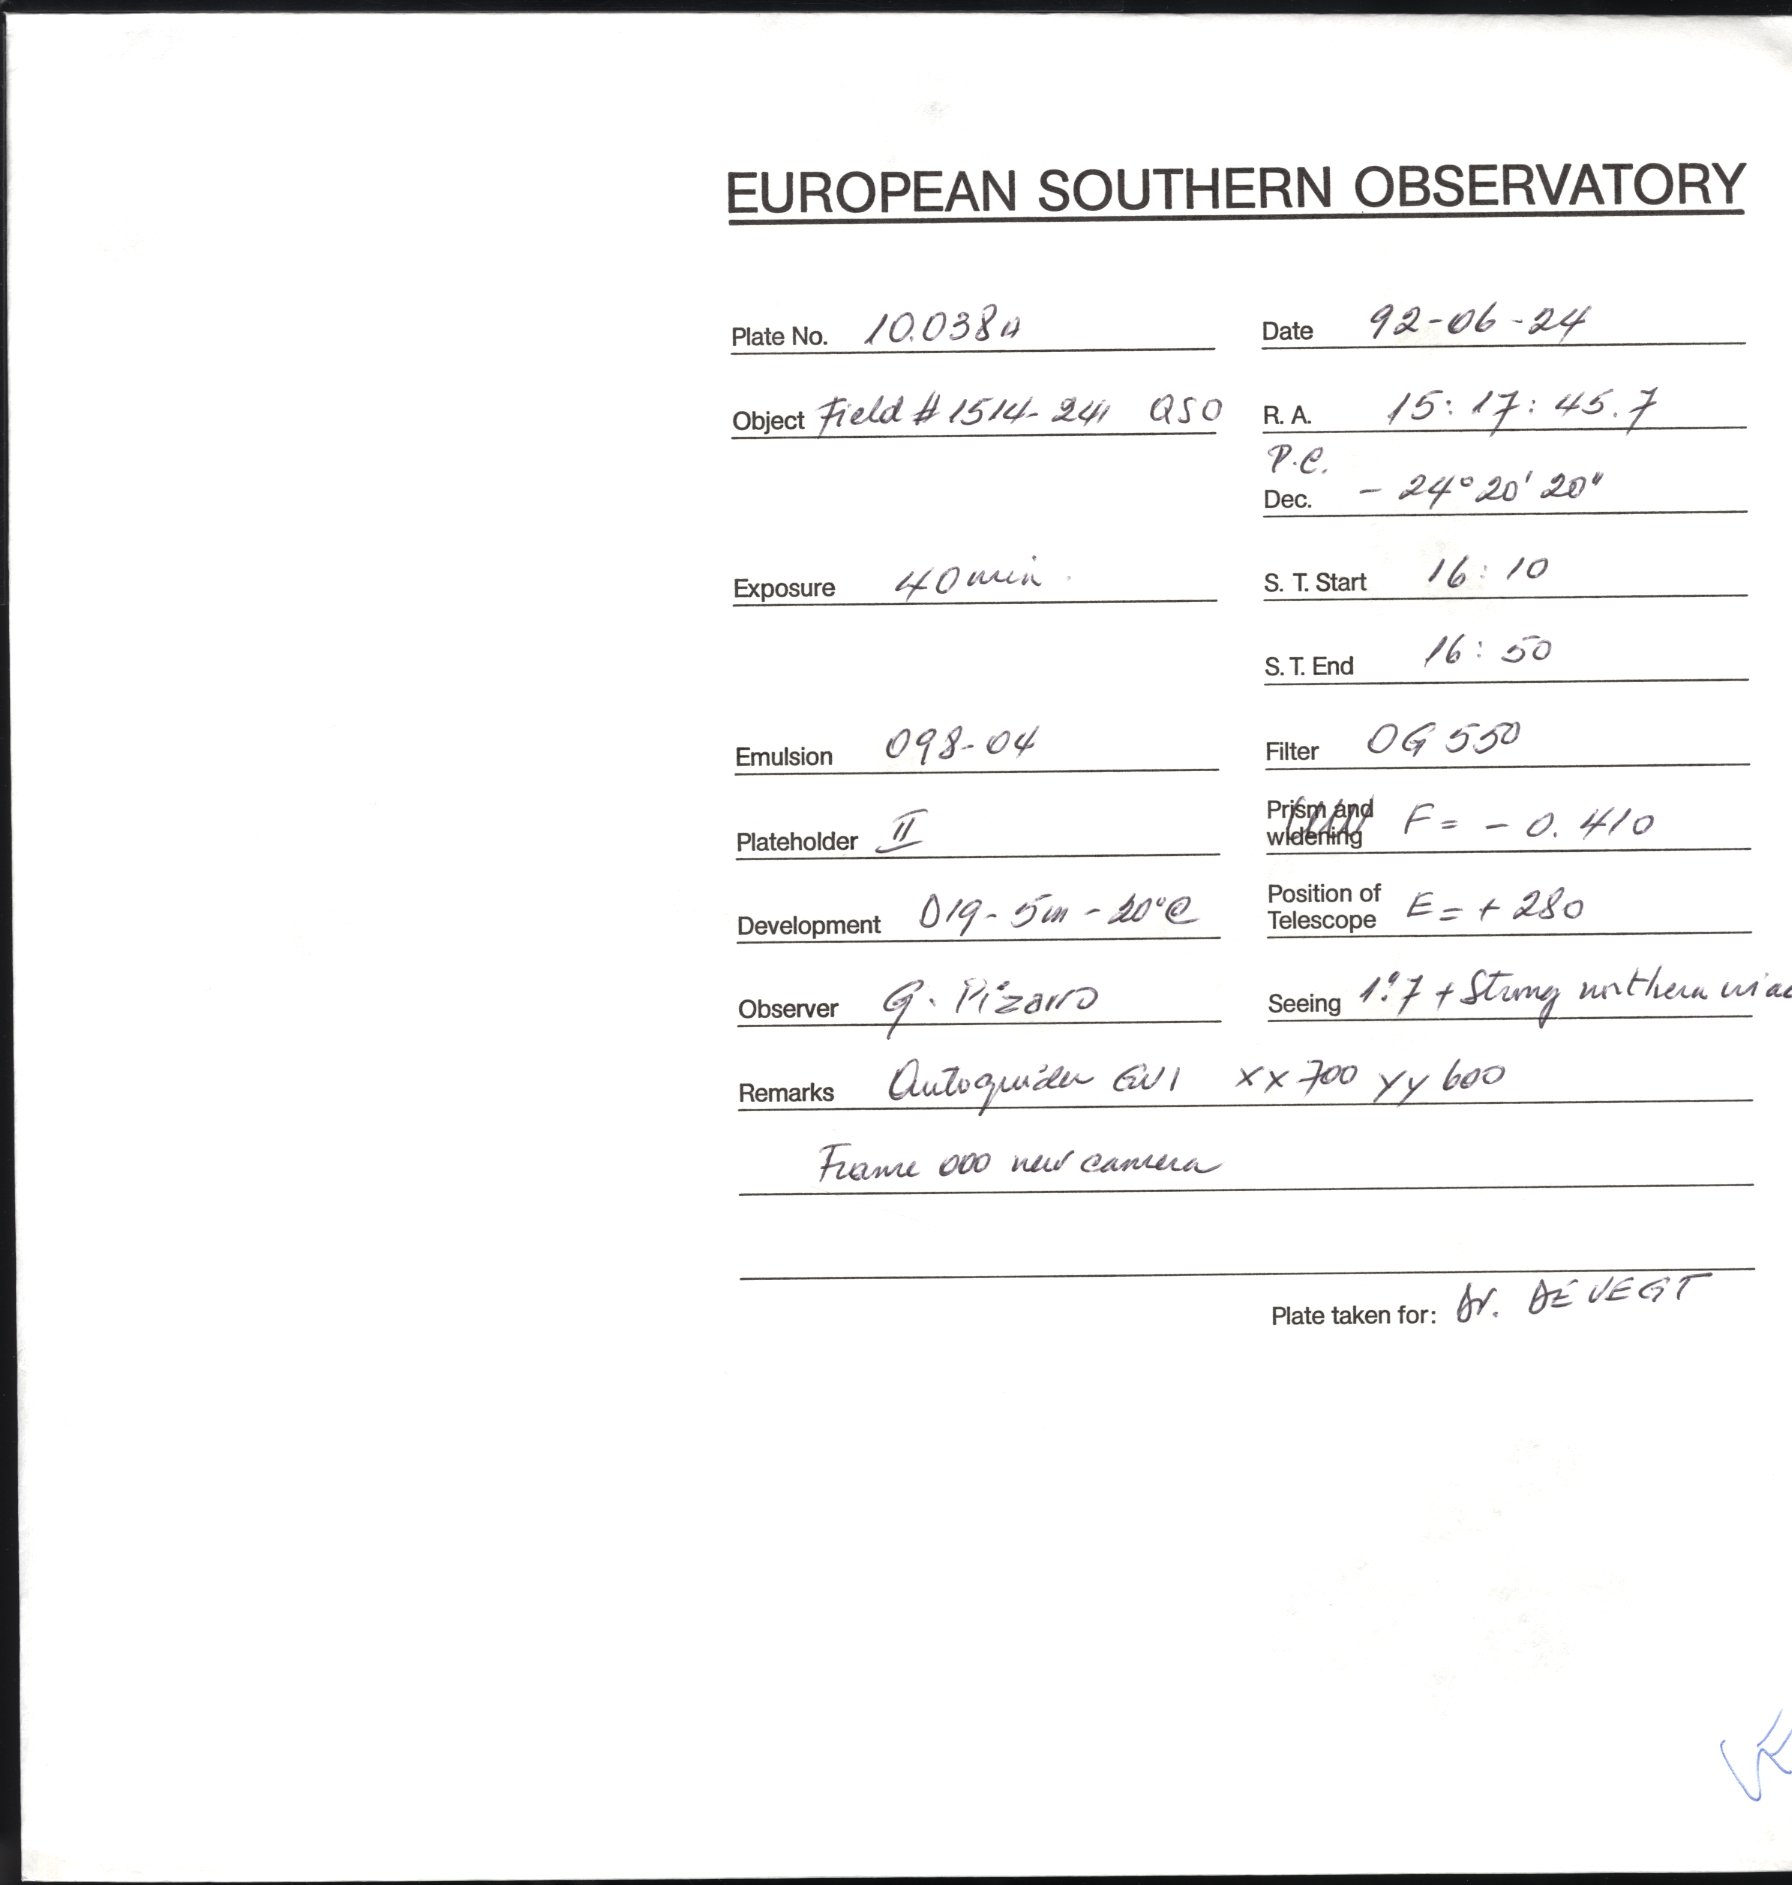 EUROPEAN SOUTHERN OBSERVATORY
Plate No. 10.038A Date 92-06-24
Object Field # 1514-241 QSO R. A. 15: 17: 45.7
P.C.
Dec. - 24° 20' 20"
Exposure 40 min. S. T. Start 16: 10
S. T. End 16: 50
Emulsion 098-04 Filter OG 550
Plateholder II Prism and widening F = - 0.410
Development D19 - 5m - 20°C Position of Telescope E = + 280
Observer G. Pizarro Seeing 1".7 + Strong northern
Remarks Autoguider xx 700 yy 600
Frame 000 new camera
Plate taken for: Dr. DE VEGT